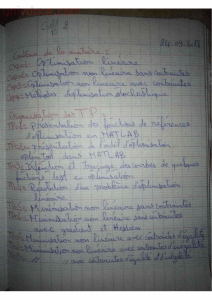 24.09.2018
Contenu de la matière :
Chap1: Optimisation linéaire
Chap2: Optimisation non linéaire sans contraintes
Chap3: Optimisation non linéaire avec contraintes
Chap4: Méthodes d'optimisation stochastique
Organisation des TP :
TP1: Présentation des fonctions de références d'optimisation en MATLAB
TP2: Présentation de l'outil d'optimisation optimtool dans MATLAB
TP3: Définition et traçage des courbes de quelques fonctions test en optimisation
TP4: Résolution d'un problème d'optimisation linéaire
TP5: Minimisation non linéaire sans contraintes
TP6: Minimisation non linéaire sans contraintes avec gradient et Hessien
TP7: Minimisation non linéaire avec contraintes d'égalité
TP8: Minimisation non linéaire avec contraintes d'inégalité
TP9: " " avec contraintes d'égalité et d'inégalité